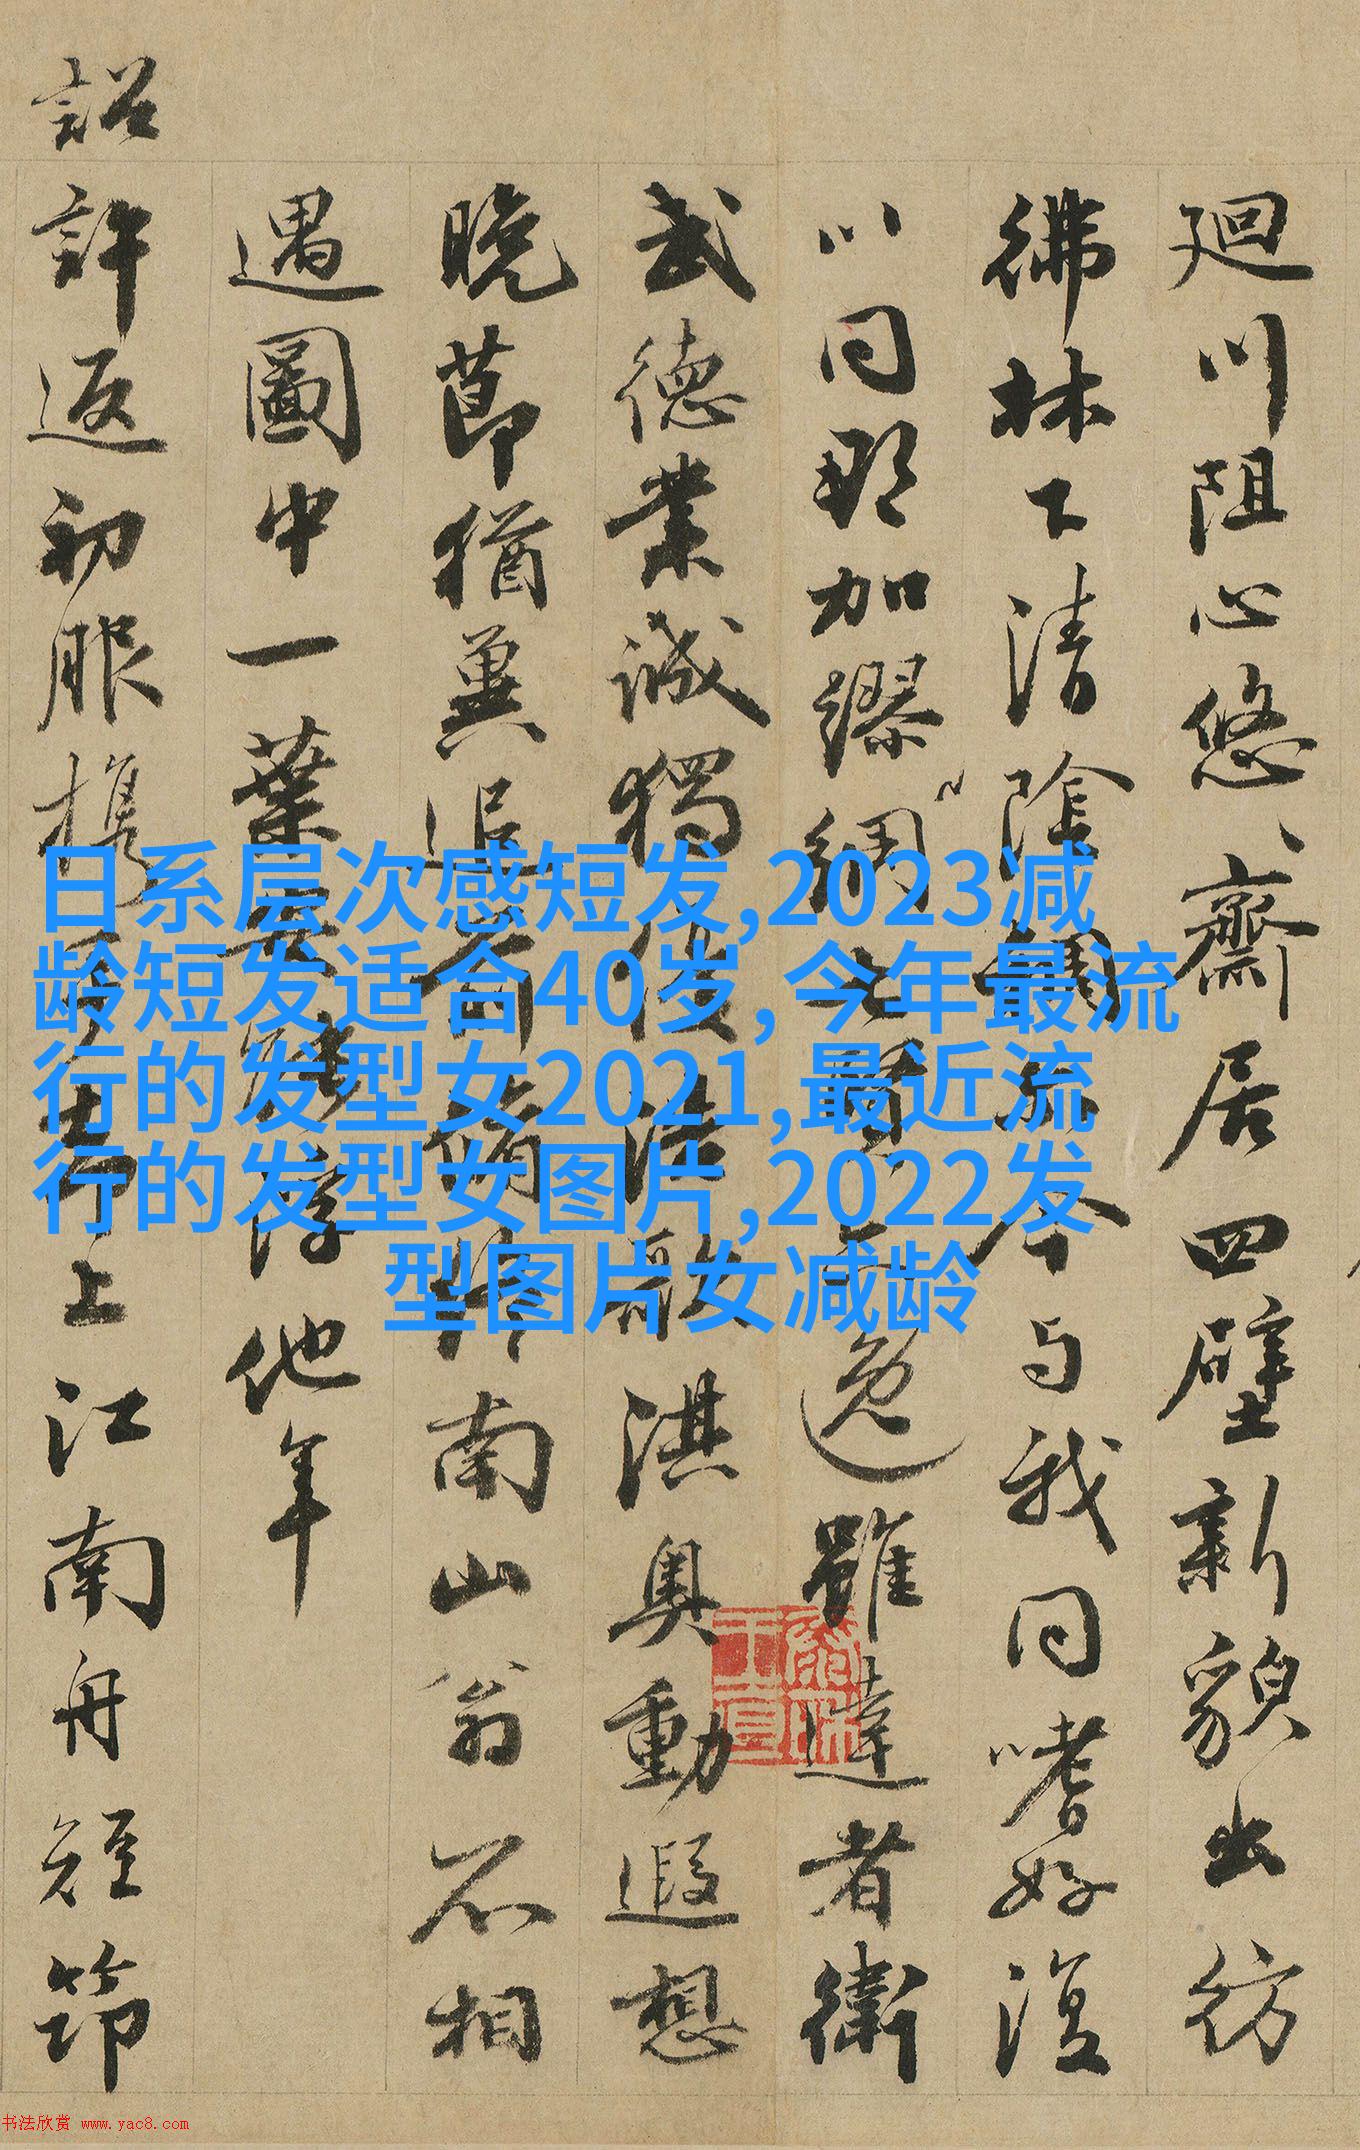 廻川阻心悠悠齋居四壁新貌出彷
彿林下清陰與今與我同嗜好復
以同那加繆綢比賢逸雖達者衛
武德業誠獨後浩歌淇奥動遐想
晚節猶冀追前脩南山翁不相
遇圖中一葉浮他年
詔許返初服携上江南舟短笻
日系层次感短发,2023减
龄短发适合40岁,今年最流
行的发型女2021,最近流
行的发型女图片,2022发
型图片女减龄
书法欣赏 www.yac8.com